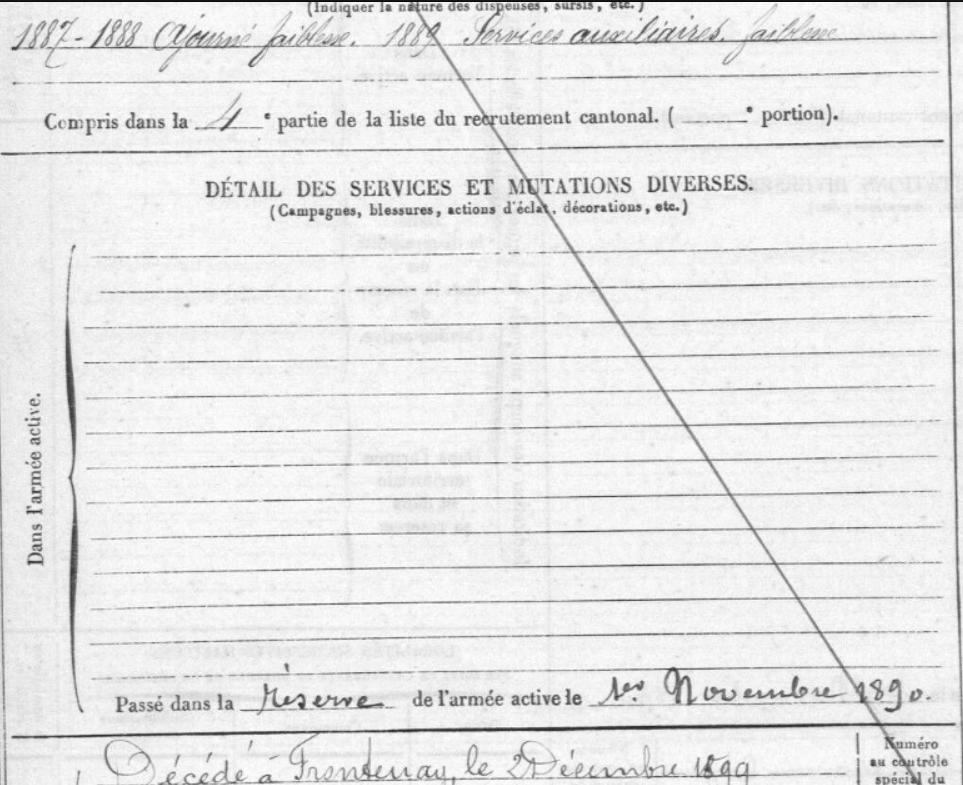 (Indiquer la nature des dispenses, sursis, etc.)
1887-1888 Ajourné faiblesse. 1889 Services auxiliaires. faiblesse
Compris dans la 4e partie de la liste du recrutement cantonal. ( e portion).
DÉTAIL DES SERVICES ET MUTATIONS DIVERSES.
(Campagnes, blessures, actions d'éclat, décorations, etc.)
Dans l'armée active.
Passé dans la réserve de l'armée active le 1er Novembre 1890.
Décédé à Frontenay, le 2 Décembre 1899
Numéro
au contrôle
spécial du